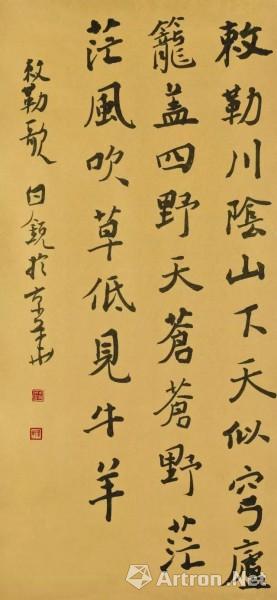 敕勒川陰山下天似穹廬
籠盖四野天蒼蒼野茫
茫風吹草低見牛羊
敕勒歌 日鏡於京華
Artron.Net